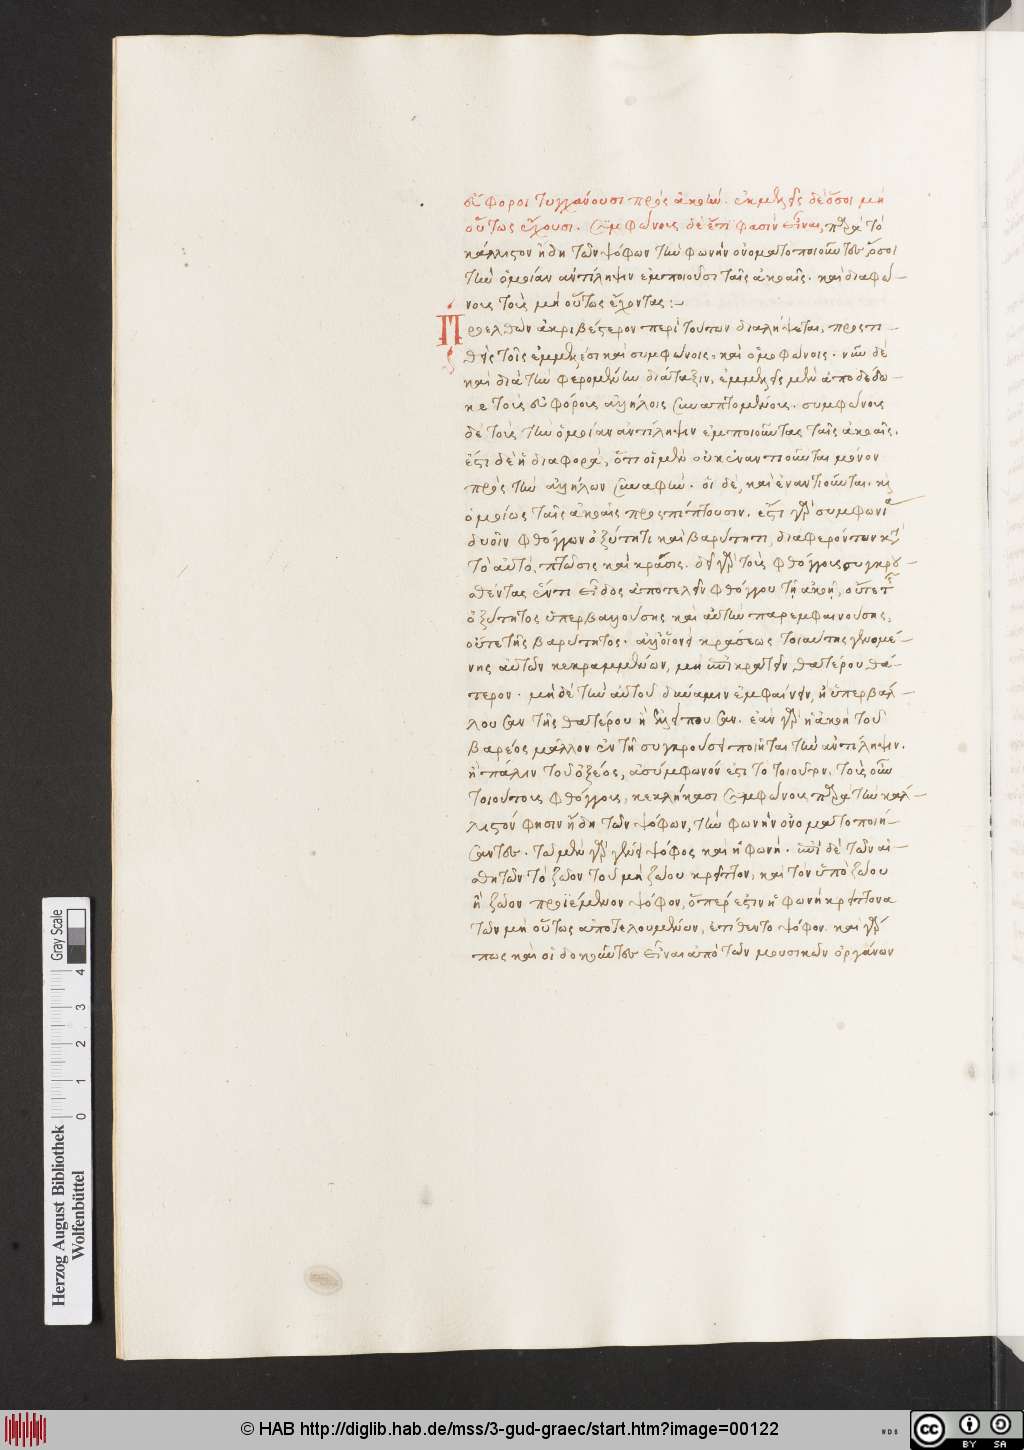 εὔφοροι τυγχάνουσι πρὸς ἀκοήν. ἐκμελεῖς δὲ ὅσοι μὴ
οὕτως ἔχουσι. συμφώνους δὲ ἔτι φασὶν εἶναι, παρὰ τὸ
κάλλιστον ἤδη τῶν ψόφων τὴν φωνὴν ὀνοματοποιοῦντες, ὅσοι
τὴν ὁμοίαν ἀντίληψιν ἐμποιοῦσι ταῖς ἀκοαῖς. καὶ διαφώ-
νους τοὺς μὴ οὕτως ἔχοντας:
Προελθὼν ἀκριβέστερον περὶ τούτων διαλήψεται, προστι-
θεὶς τοῖς ἐμμελέσι καὶ συμφώνοις, καὶ ὁμοφώνοις. νῦν δὲ
καὶ διὰ τὴν φερομένην διάταξιν, ἐμμελεῖς μὲν ἀποδέδω-
κε τοὺς εὐφόρως ἀλλήλοις συναπτομένους. συμφώνους
δὲ τοὺς τὴν ὁμοίαν ἀντίληψιν ἐμποιοῦντας ταῖς ἀκοαῖς.
ἔστι δὲ ἡ διαφορὰ, ὅτι οἱ μὲν οὐκ ἐναντιοῦνται μόνον
πρὸς τὴν ἀλλήλων συναφήν. οἱ δὲ, καὶ ἐναντιοῦνται. καὶ
ὁμοίως ταῖς ἀκοαῖς προσπίπτουσιν. ἔστι γὰρ συμφωνία
δυοῖν φθόγγων ὀξύτητι καὶ βαρύτητι, διαφερόντων κατὰ
τὸ αὐτὸ, πτῶσις καὶ κρᾶσις. δεῖ γὰρ τοὺς φθόγγους συγκρου-
σθέντας ἕν τι εἶδος ἀποτελεῖν φθόγγου τῇ ἀκοῇ, οὔτε τῆς
ὀξύτητος ὑπερβαλλούσης καὶ αὑτὴν παρεμφαινούσης,
οὔτε τῆς βαρύτητος. ἀλλ' οἱονεὶ κράσεως τοιαύτης γινομέ-
νης αὐτῶν κεκραμμένων, μὴ ἐπικρατεῖν θατέρου θά-
τερον. μὴ δὲ τὴν αὐτοῦ δύναμιν ἐμφαίνειν, ἢ ὑπερβάλ-
λουσαν τῆς θατέρου ἢ ἐλλείπουσαν. ἐὰν γὰρ ἡ ἀκοὴ τοῦ
βαρέος μᾶλλον ἐν τῇ συγκρούσει ποιῆται τὴν ἀντίληψιν.
ἢ πάλιν τοῦ ὀξέος, ἀσύμφωνόν ἐστι τὸ τοιοῦτον. τοὺς οὖν
τοιούτους φθόγγους, κεκλήκασι συμφώνους παρὰ τὴν καλ-
λίστόν φησιν ἤδη τῶν ψόφων, τὴν φωνὴν ὀνοματοποιή-
σαντες. τοῦ μὲν γὰρ γένει ψόφος καὶ ἡ φωνή. ἐπεὶ δὲ τῶν αἰ-
σθητῶν τὸ ζῶον τοῦ μὴ ζώου κρεῖττον, καὶ τὸν ὑπὸ ζώου
ἢ ζῶον προϊέμενον ψόφον, ὅπερ ἐστὶν ἡ φωνὴ κρείττονα
τῶν μὴ οὕτως ἀποτελουμένων, ἐτίθεντο ψόφον. καὶ γάρ
πως καὶ οἱ δοκοῦντες εἶναι ἀπὸ τῶν μουσικῶν ὀργάνων
Herzog August Bibliothek
Wolfenbüttel
0 1 2 3 4
Gray Scale
© HAB http://diglib.hab.de/mss/3-gud-graec/start.htm?image=00122
cc BY SA